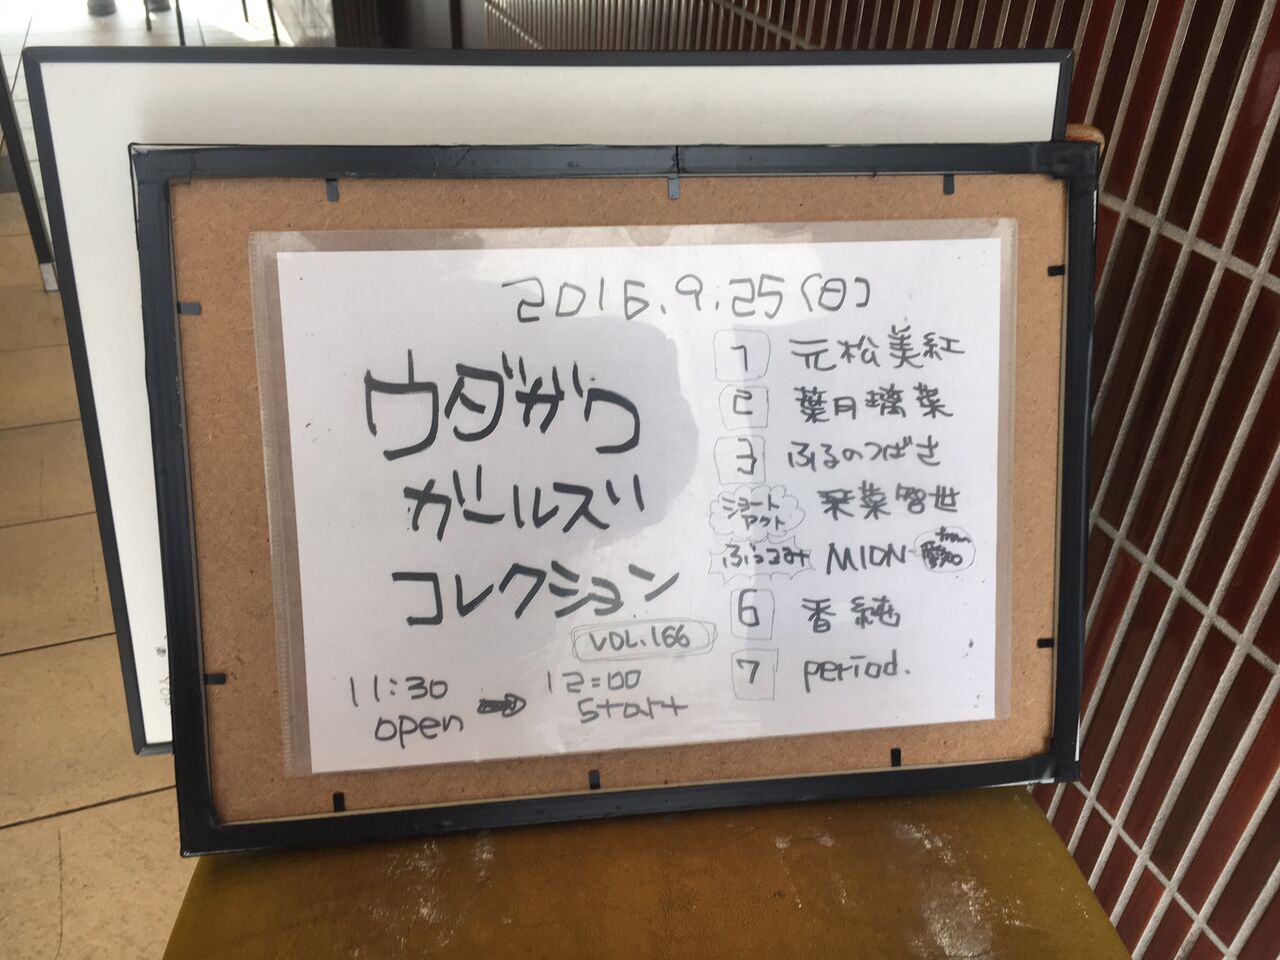 2016.9.25(日)
ウダガワ
ガールズ
コレクション
VOL.166
11:30
open
12:00
start
1 元松美紅
2 葉月璃菜
3 ふるのつばさ
ショートアクト 栞菜智世
MION from 愛知
6 香純
7 period.